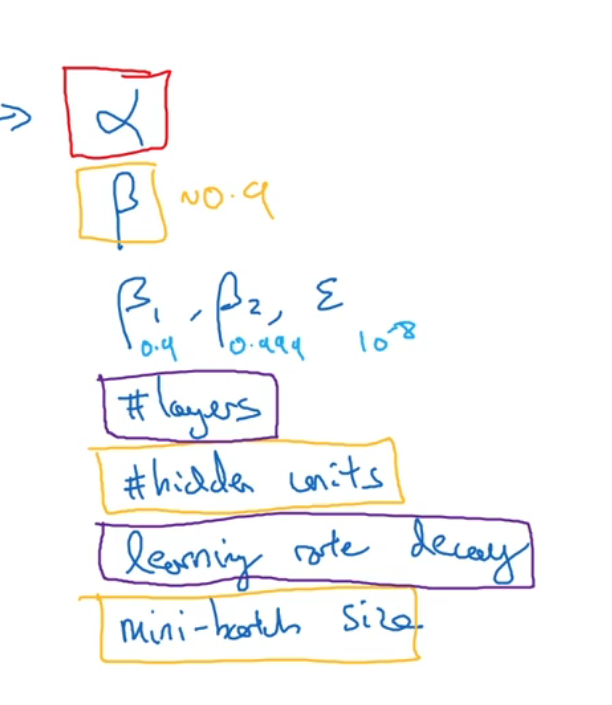 ⇒ α
β ~0.9
β₁, β₂, ε
0.9 0.999 10⁻⁸
#layers
#hidden units
learning rate decay
mini-batch size